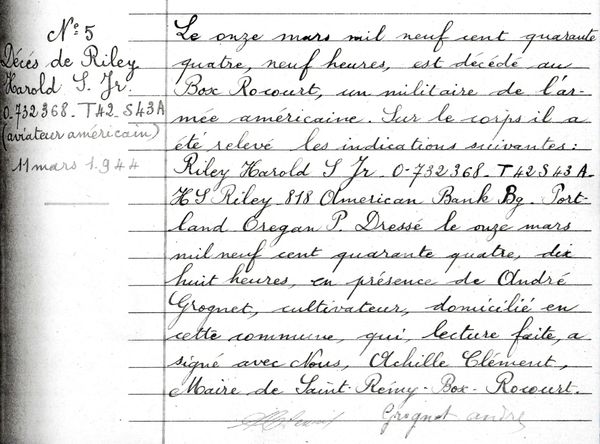 N° 5
Décès de Riley
Harold S. Jr.
0-732368. T42. S43A
(aviateur américain)
11 mars 1944
Le onze mars mil neuf cent quarante
quatre, neuf heures, est décédé au
Box Rocourt, un militaire de l'ar-
mée américaine. Sur le corps il a
été relevé les indications suivantes:
Riley Harold S Jr. 0-732368. T42S43A.
HS Riley 818 American Bank Bg. Port-
land Oregan P. Dressé le onze mars
mil neuf cent quarante quatre, dix
huit heures, en présence de André
Grognet, cultivateur, domicilié en
cette commune, qui, lecture faite, a
signé avec Nous, Achille Clément,
Maire de Saint-Rémy-Box-Rocourt.
Grognet andré